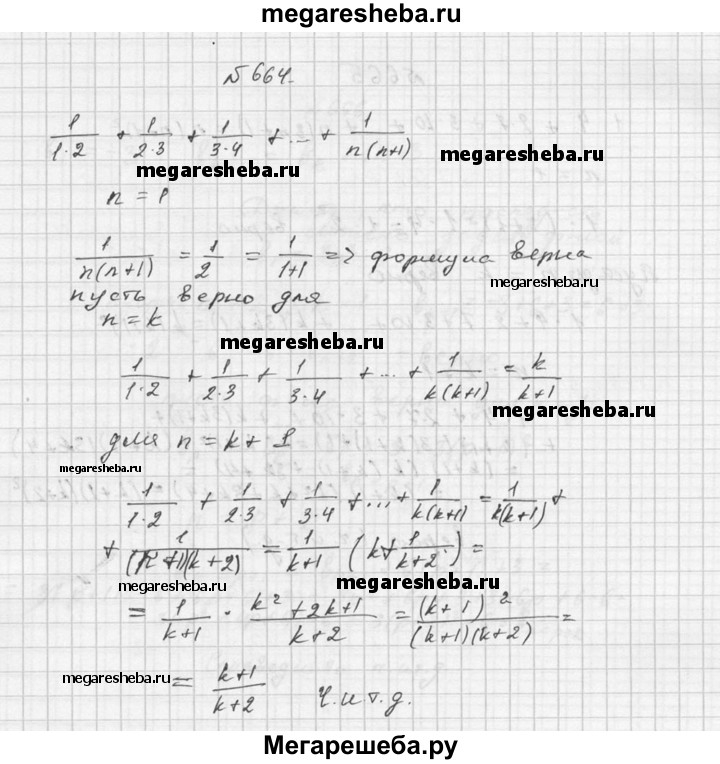 megaresheba.ru
№ 664.
1/(1·2) + 1/(2·3) + 1/(3·4) + ... + 1/(n(n+1))
megaresheba.ru megaresheba.ru
n = 1
1/(n(n+1)) = 1/2 = 1/(1+1) => формула верна
megaresheba.ru
пусть верно для
n = k
megaresheba.ru
1/(1·2) + 1/(2·3) + 1/(3·4) + ... + 1/(k(k+1)) = k/(k+1)
megaresheba.ru
для n = k + 1
megaresheba.ru
1/(1·2) + 1/(2·3) + 1/(3·4) + ... + 1/(k(k+1)) = 1/(k(k+1)) +
+ 1/((k+1)(k+2)) = 1/(k+1) (k + 1/(k+2)) =
megaresheba.ru megaresheba.ru
= 1/(k+1) · (k² + 2k+1)/(k+2) = (k+1)²/((k+1)(k+2)) =
megaresheba.ru megaresheba.ru
= (k+1)/(k+2) ч.и.т.д.
Мегарешеба.ру